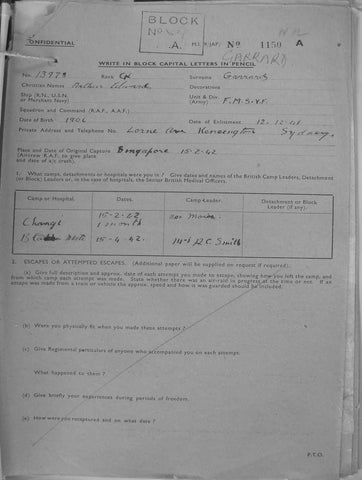 BLOCK
CONFIDENTIAL
No
A.
M.I. 9/JAP/ No 1150 A
GARRARD
WRITE IN BLOCK CAPITAL LETTERS IN PENCIL
No. 13978 Rank Surname Garrard
Christian Names Arthur Edward Decorations
Ship (R.N., U.S.N. or Merchant Navy) Unit & Div. (Army) F.M.S.V.F.
Squadron and Command (R.A.F., A.A.F.)
Date of Birth 1906 Date of Enlistment 12.12.41
Private Address and Telephone No. Lorne Ave Kensington Sydney.
Place and Date of Original Capture Singapore 15.2.42
(Aircrew R.A.F. to give place
and date of a/c crash).
1. What camps, detachments or hospitals were you in? Give dates and names of the British Camp Leaders, Detachment
(or Block) Leaders or, in the case of hospitals, the Senior British Medical Officers.
Camp or Hospital. Dates. Camp-Leader. Detachment or Block
Leader (if any).
15-2-42
Changi 1 month
15-4-42. R C Smith
2. ESCAPES OR ATTEMPTED ESCAPES. (Additional paper will be supplied on request if required).
(a) Give full description and approx. date of each attempt you made to escape, showing how you left the camp, and
from which camp each attempt was made. State whether there was an air-raid in progress at the time or not. If an
attempt was made from a train or vehicle the approx. speed and how it was guarded should be included.
(b) Were you physically fit when you made these attempts?
(c) Give Regimental particulars of anyone who accompanied you on each attempt.
What happened to them?
(d) Give briefly your experiences during periods of freedom.
(e) How were you recaptured and on what date?
P.T.O.